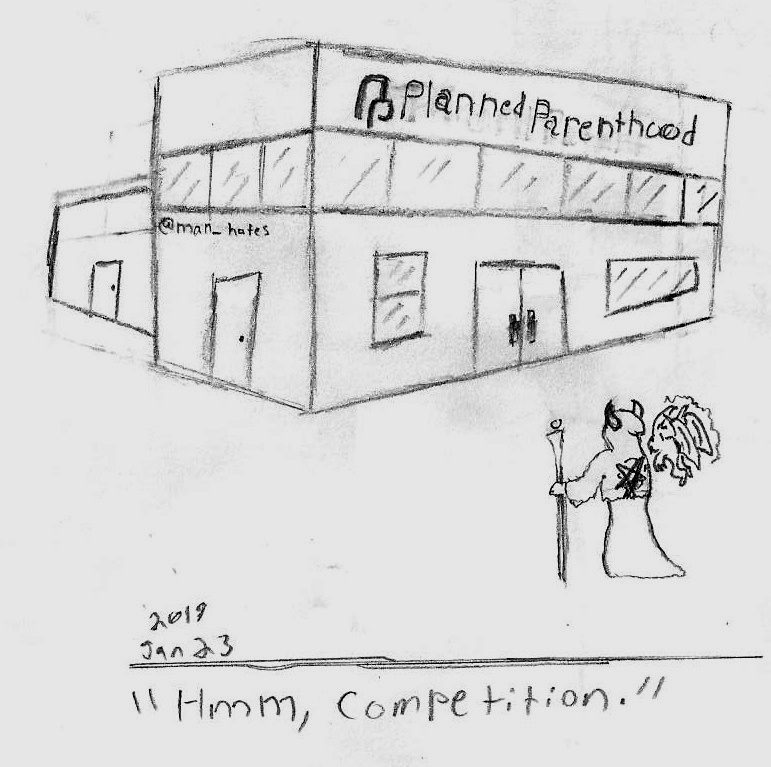 Planned Parenthood
@man_hates
2019
Jan 23
"Hmm, Competition."